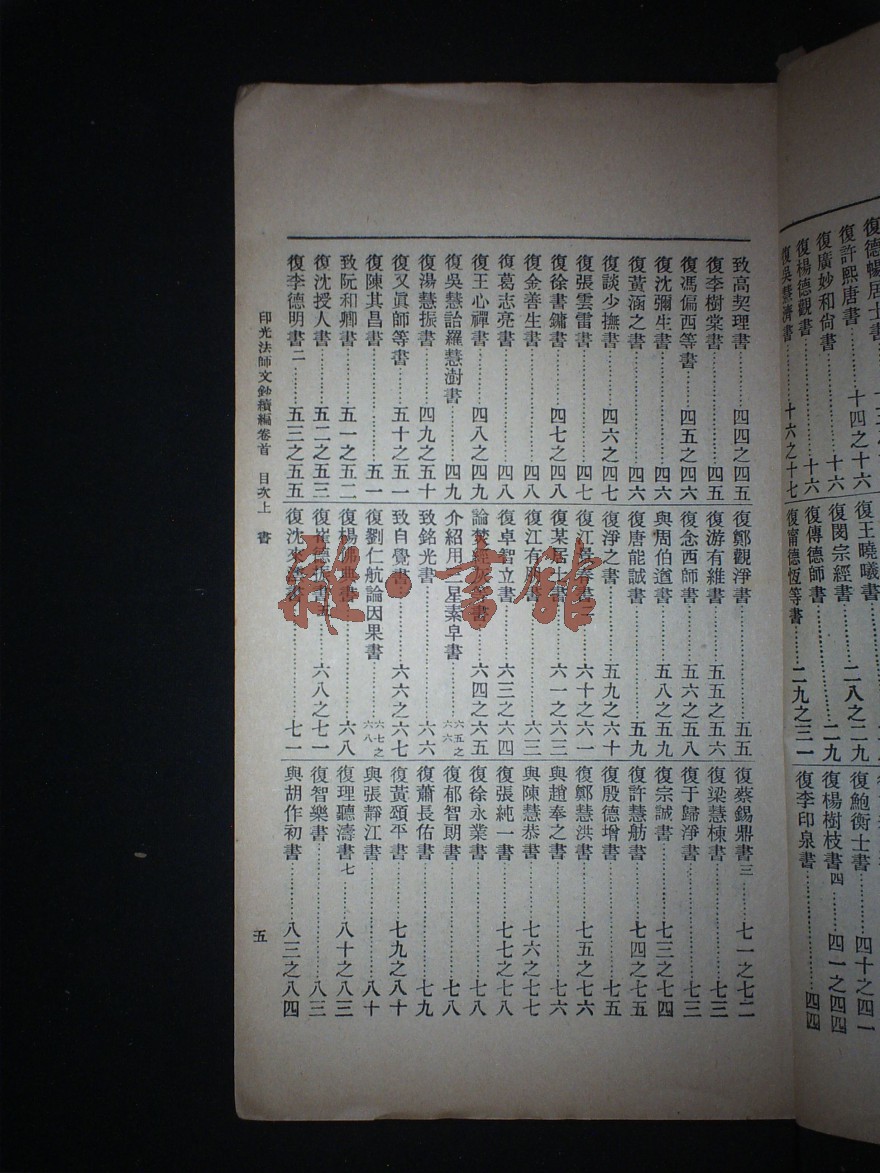 復德暢居士書
復許熙唐書
十四之十六
復廣妙和尙書
十六
復楊德觀書
十六
復吳慧濟書
十六之十七
復王曉曦書
復閔宗經書
二八之二九
復傳德師書
二九
復甯德恆等書
二九之三一
復鮑衡士書
四十之四一
復楊樹枝書四
四一之四四
復李印泉書
四四
致高契理書
四四之四五
復李樹棠書
四五
復馮偏西等書
四五之四六
復沈彌生書
四六
復黃涵之書
四六
復談少撫書
四六之四七
復張雲雷書
四七
復徐書鏞書
四七之四八
復金善生書
四八
復葛志亮書
四八
復王心禪書
四八之四九
復吳慧詒羅慧澍書
四九
復湯慧振書
四九之五十
復又眞師等書
五十之五一
復陳其昌書
五一
致阮和卿書
五一之五二
復沈授人書
五二之五三
復李德明書二
五三之五五
復鄭觀淨書
五五
復游有維書
五五之五六
復念西師書
五六之五八
與周伯道書
五八之五九
復唐能誠書
五九
復淨之書
五九之六十
復江景春書二
六十之六一
復某居士書
六一之六三
復江有朋書
六三
復卓智立書
六三之六四
論焚經灰等書
六四之六五
介紹用三星素皁書
六五之六六
致銘光書
六六
致自覺書
六六之六七
復劉仁航論因果書
六七之六八
復楊佛典書
六八
復崔德振書五
六八之七一
復沈來濤書
七一
復蔡錫鼎書三
七一之七二
復梁慧棟書
七三
復于歸淨書
七三
復宗誠書
七三之七四
復許慧舫書
七四之七五
復殷德增書
七五
復鄭慧洪書
七五之七六
與趙奉之書
七六
與陳慧恭書
七六之七七
復張純一書
七七之七八
復徐永業書
七八
復郁智朗書
七八
復蕭長佑書
七九
復黃頌平書
七九之八十
與張靜江書
八十
復理聽濤書七
八十之八三
復智樂書
八三
與胡作初書
八三之八四
印光法師文鈔續編卷首 目次上 書
五
雅·書館